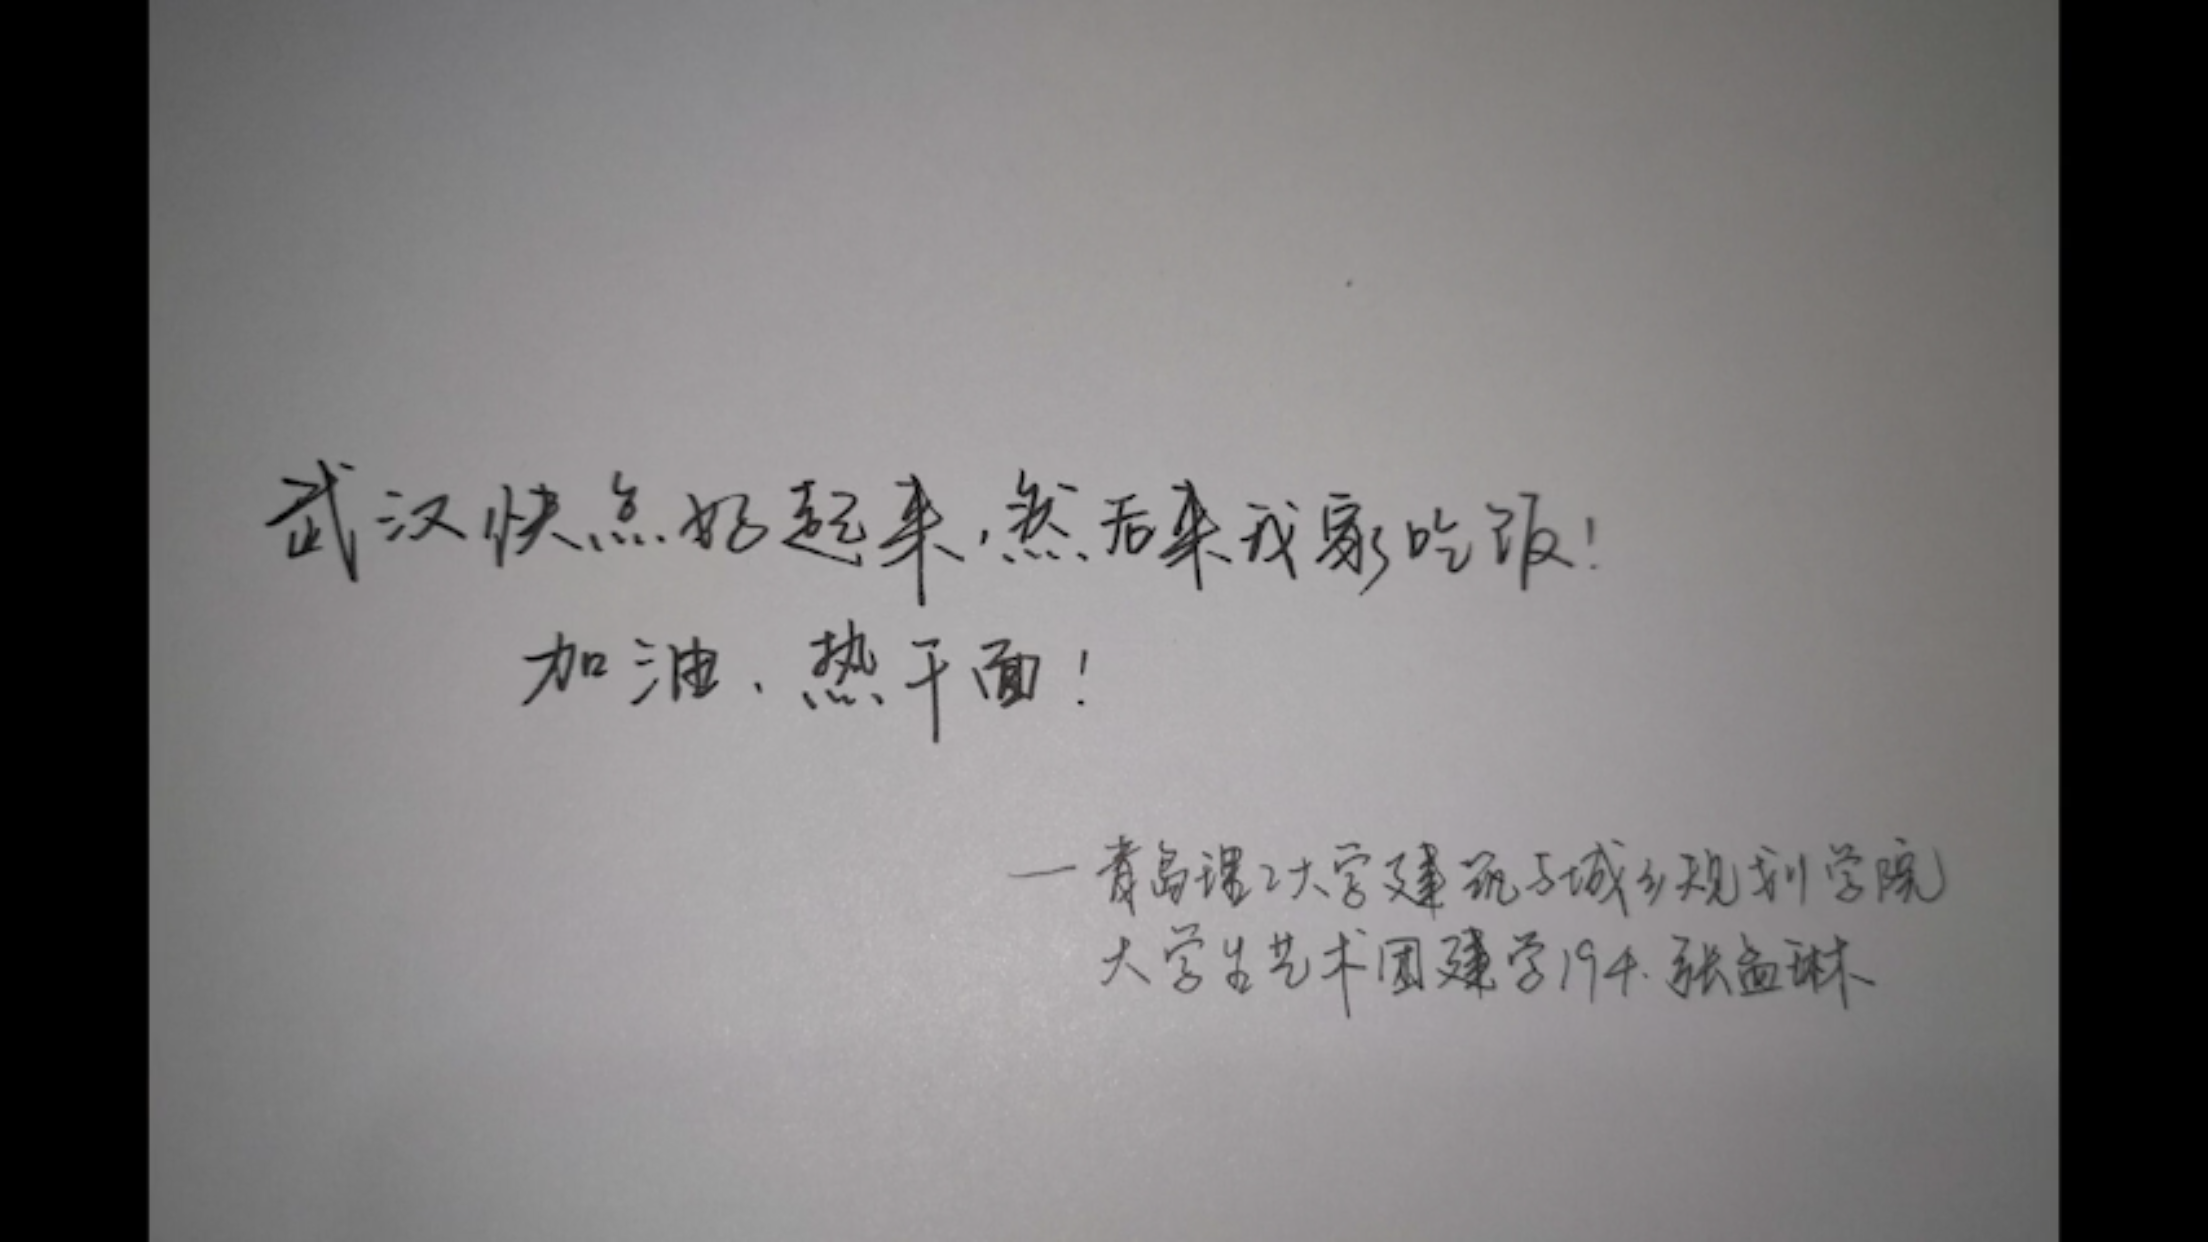 武汉快点好起来，然后来我家吃饭！
加油、热干面！
—青岛理工大学建筑与城乡规划学院
大学生艺术团建学194.张孟琳